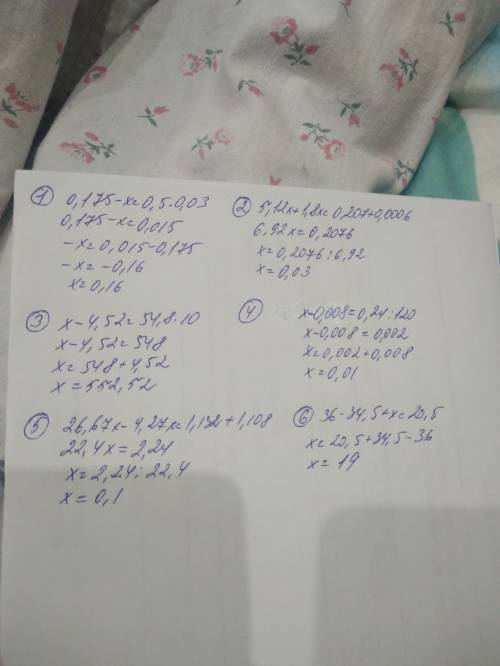 ① 0,175-x=0,5·0,03
0,175-x=0,015
-x=0,015-0,175
-x=-0,16
x=0,16
② 5,12x+1,8x=0,207+0,0006
6,92x=0,2076
x=0,2076:6,92
x=0,03
③ x-4,52=54,8·10
x-4,52=548
x=548+4,52
x=552,52
④ x-0,008=0,24:120
x-0,008=0,002
x=0,002+0,008
x=0,01
⑤ 26,67x-4,27x=1,132+1,108
22,4x=2,24
x=2,24:22,4
x=0,1
⑥ 36-34,5+x=20,5
x=20,5+34,5-36
x=19